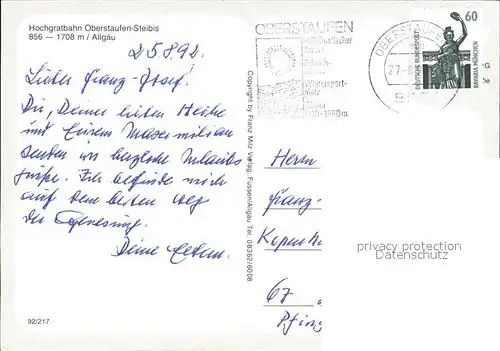 Hochgratbahn Oberstaufen-Steibis
856 — 1708 m / Allgäu
25.8.92.
Lieber Franz-Josef!
Dir, Deiner lieben Heike
und Eurem Maxemilian
senden wir herzliche Urlaubs
grüße. Hier befinde mich
auf dem besten Weg
der Genesung.
Deine Eltern.
92/217
Copyright by Franz Milz Verlag, Füssen/Allgäu Tel. 08362/6008
OBERSTAUFEN
OBERSTAUFEN
27.-8
60
DEUTSCHE BUNDESPOST
BAVARIA MÜNCHEN
Herrn
Franz-
Kopenh
67
privacy protection
watermark